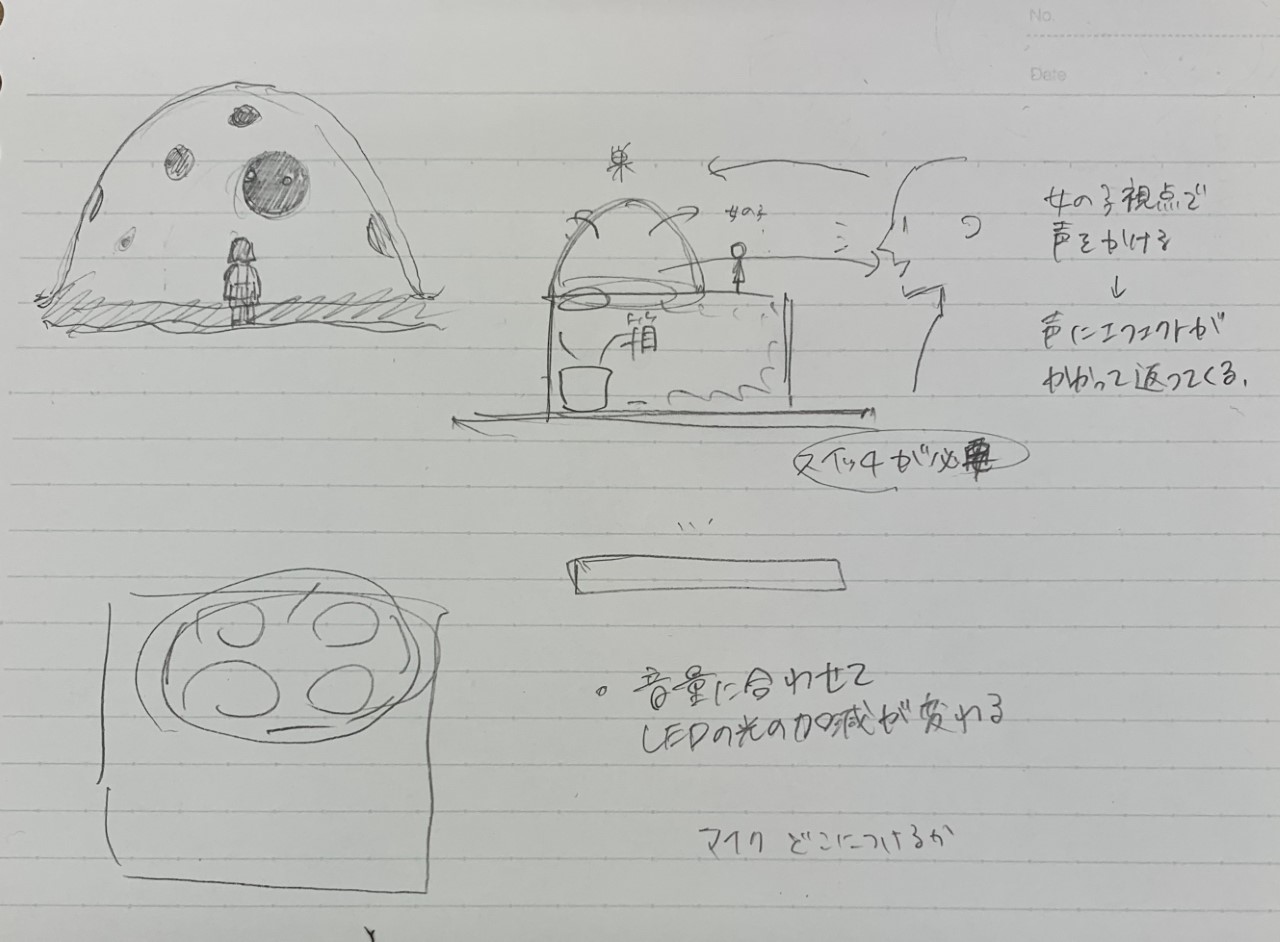 No.
Date
巣
女の子
女の子視点で
声をかける
↓
声にエフェクトが
かかって返ってくる.
スイッチが必要
• 音量に合わせて
LEDの光の加減が変わる
マイク どこにつけるか